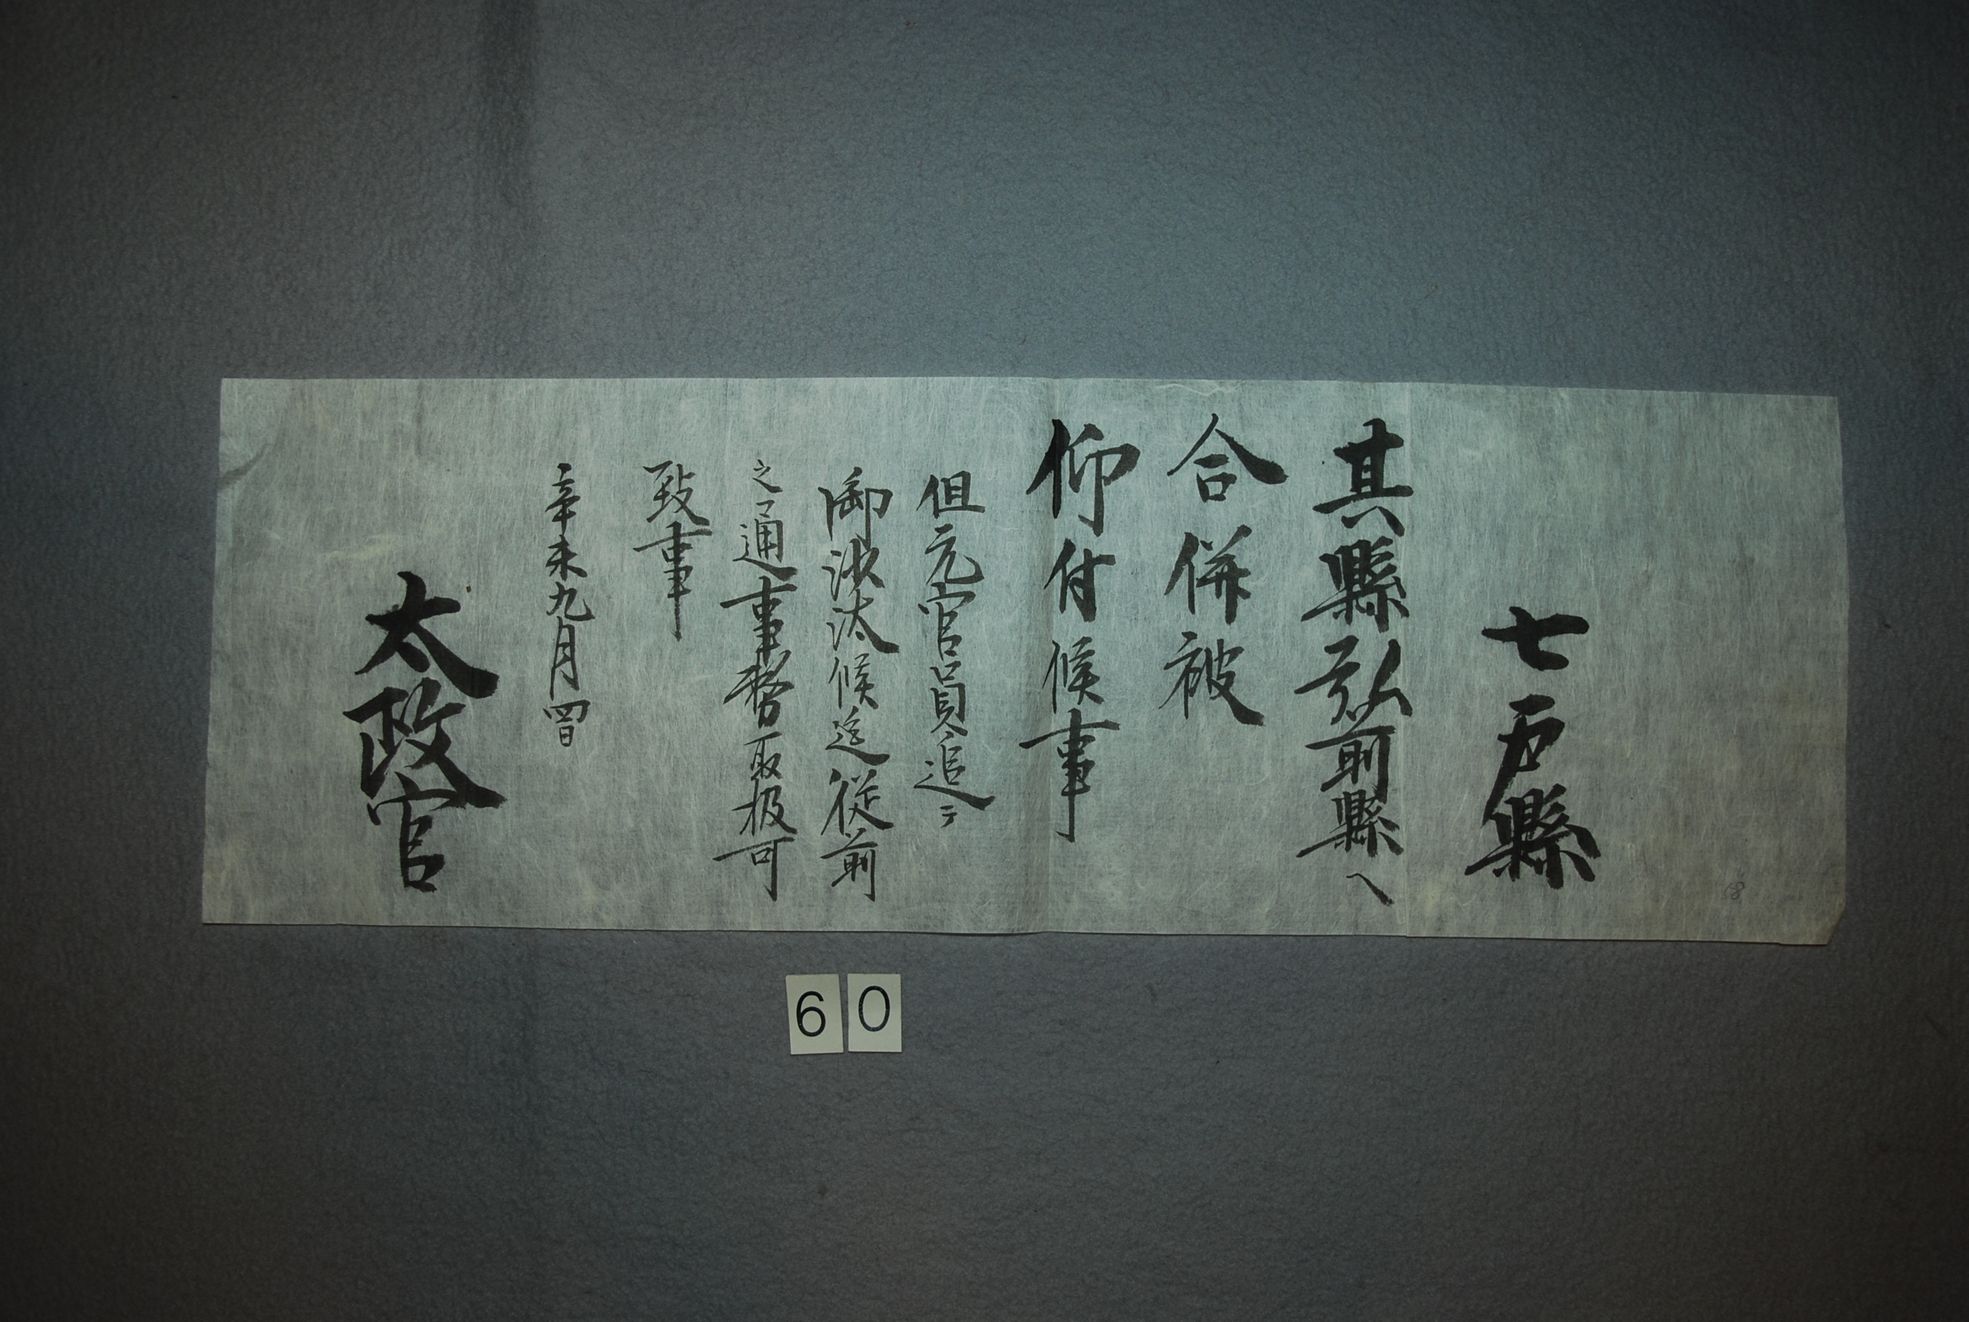 七戸縣
其縣弘前縣へ
合併被
仰付候事
但元官員ハ追テ
御沙汰候迄従前
之通事務取扱可
致事
辛未九月四日
太政官
68
60